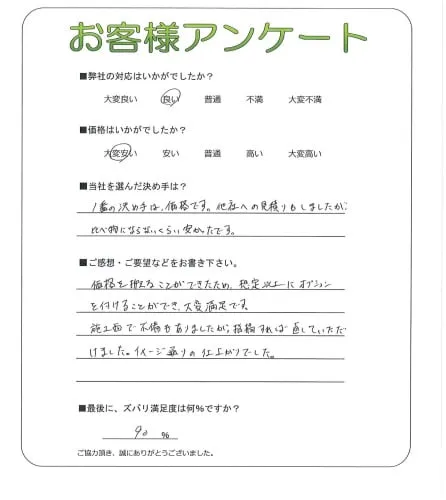 お客様アンケート
■弊社の対応はいかがでしたか？
大変良い 良い 普通 不満 大変不満
■価格はいかがでしたか？
大変安い 安い 普通 高い 大変高い
■当社を選んだ決め手は？
1番の決め手は、価格です。他社への見積りもしましたが、
比べ物にならないくらい安かったです。
■ご感想・ご要望などをお書き下さい。
価格を抑えることができたため、想定以上にオプション
を付けることができ、大変満足です。
施工面で不備もありましたが、指摘すれば直していただ
けました。イメージ通りの仕上がりでした。
■最後に、ズバリ満足度は何%ですか？
90 %
ご協力頂き、誠にありがとうございました。